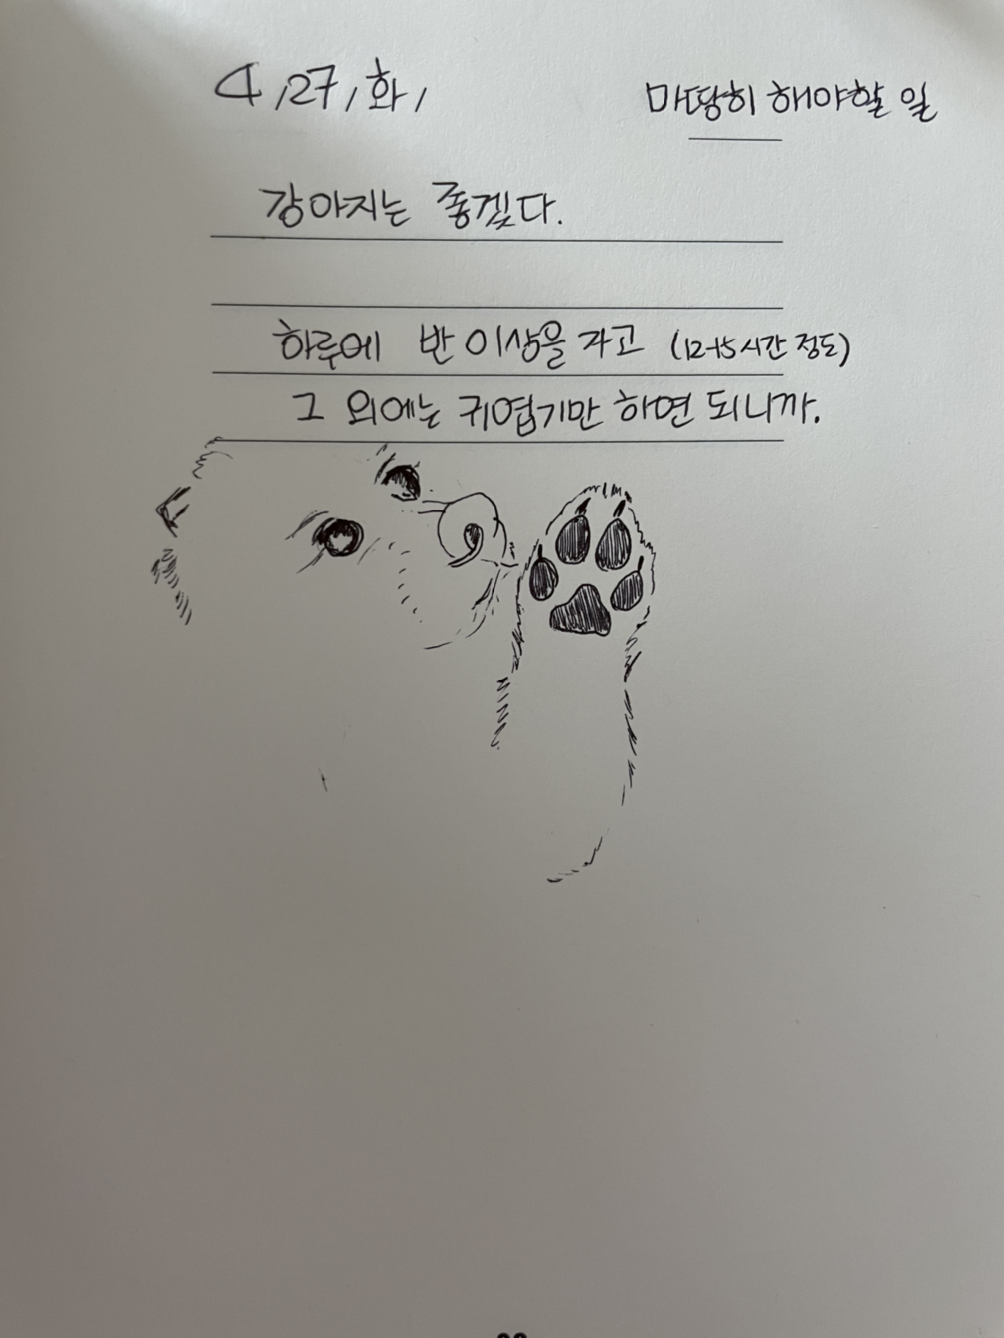 4/27/화/
마땅히 해야할 일
강아지는 좋겠다.
하루에 반 이상을 자고 (12-15시간 정도)
그 외에는 귀엽기만 하면 되니까.